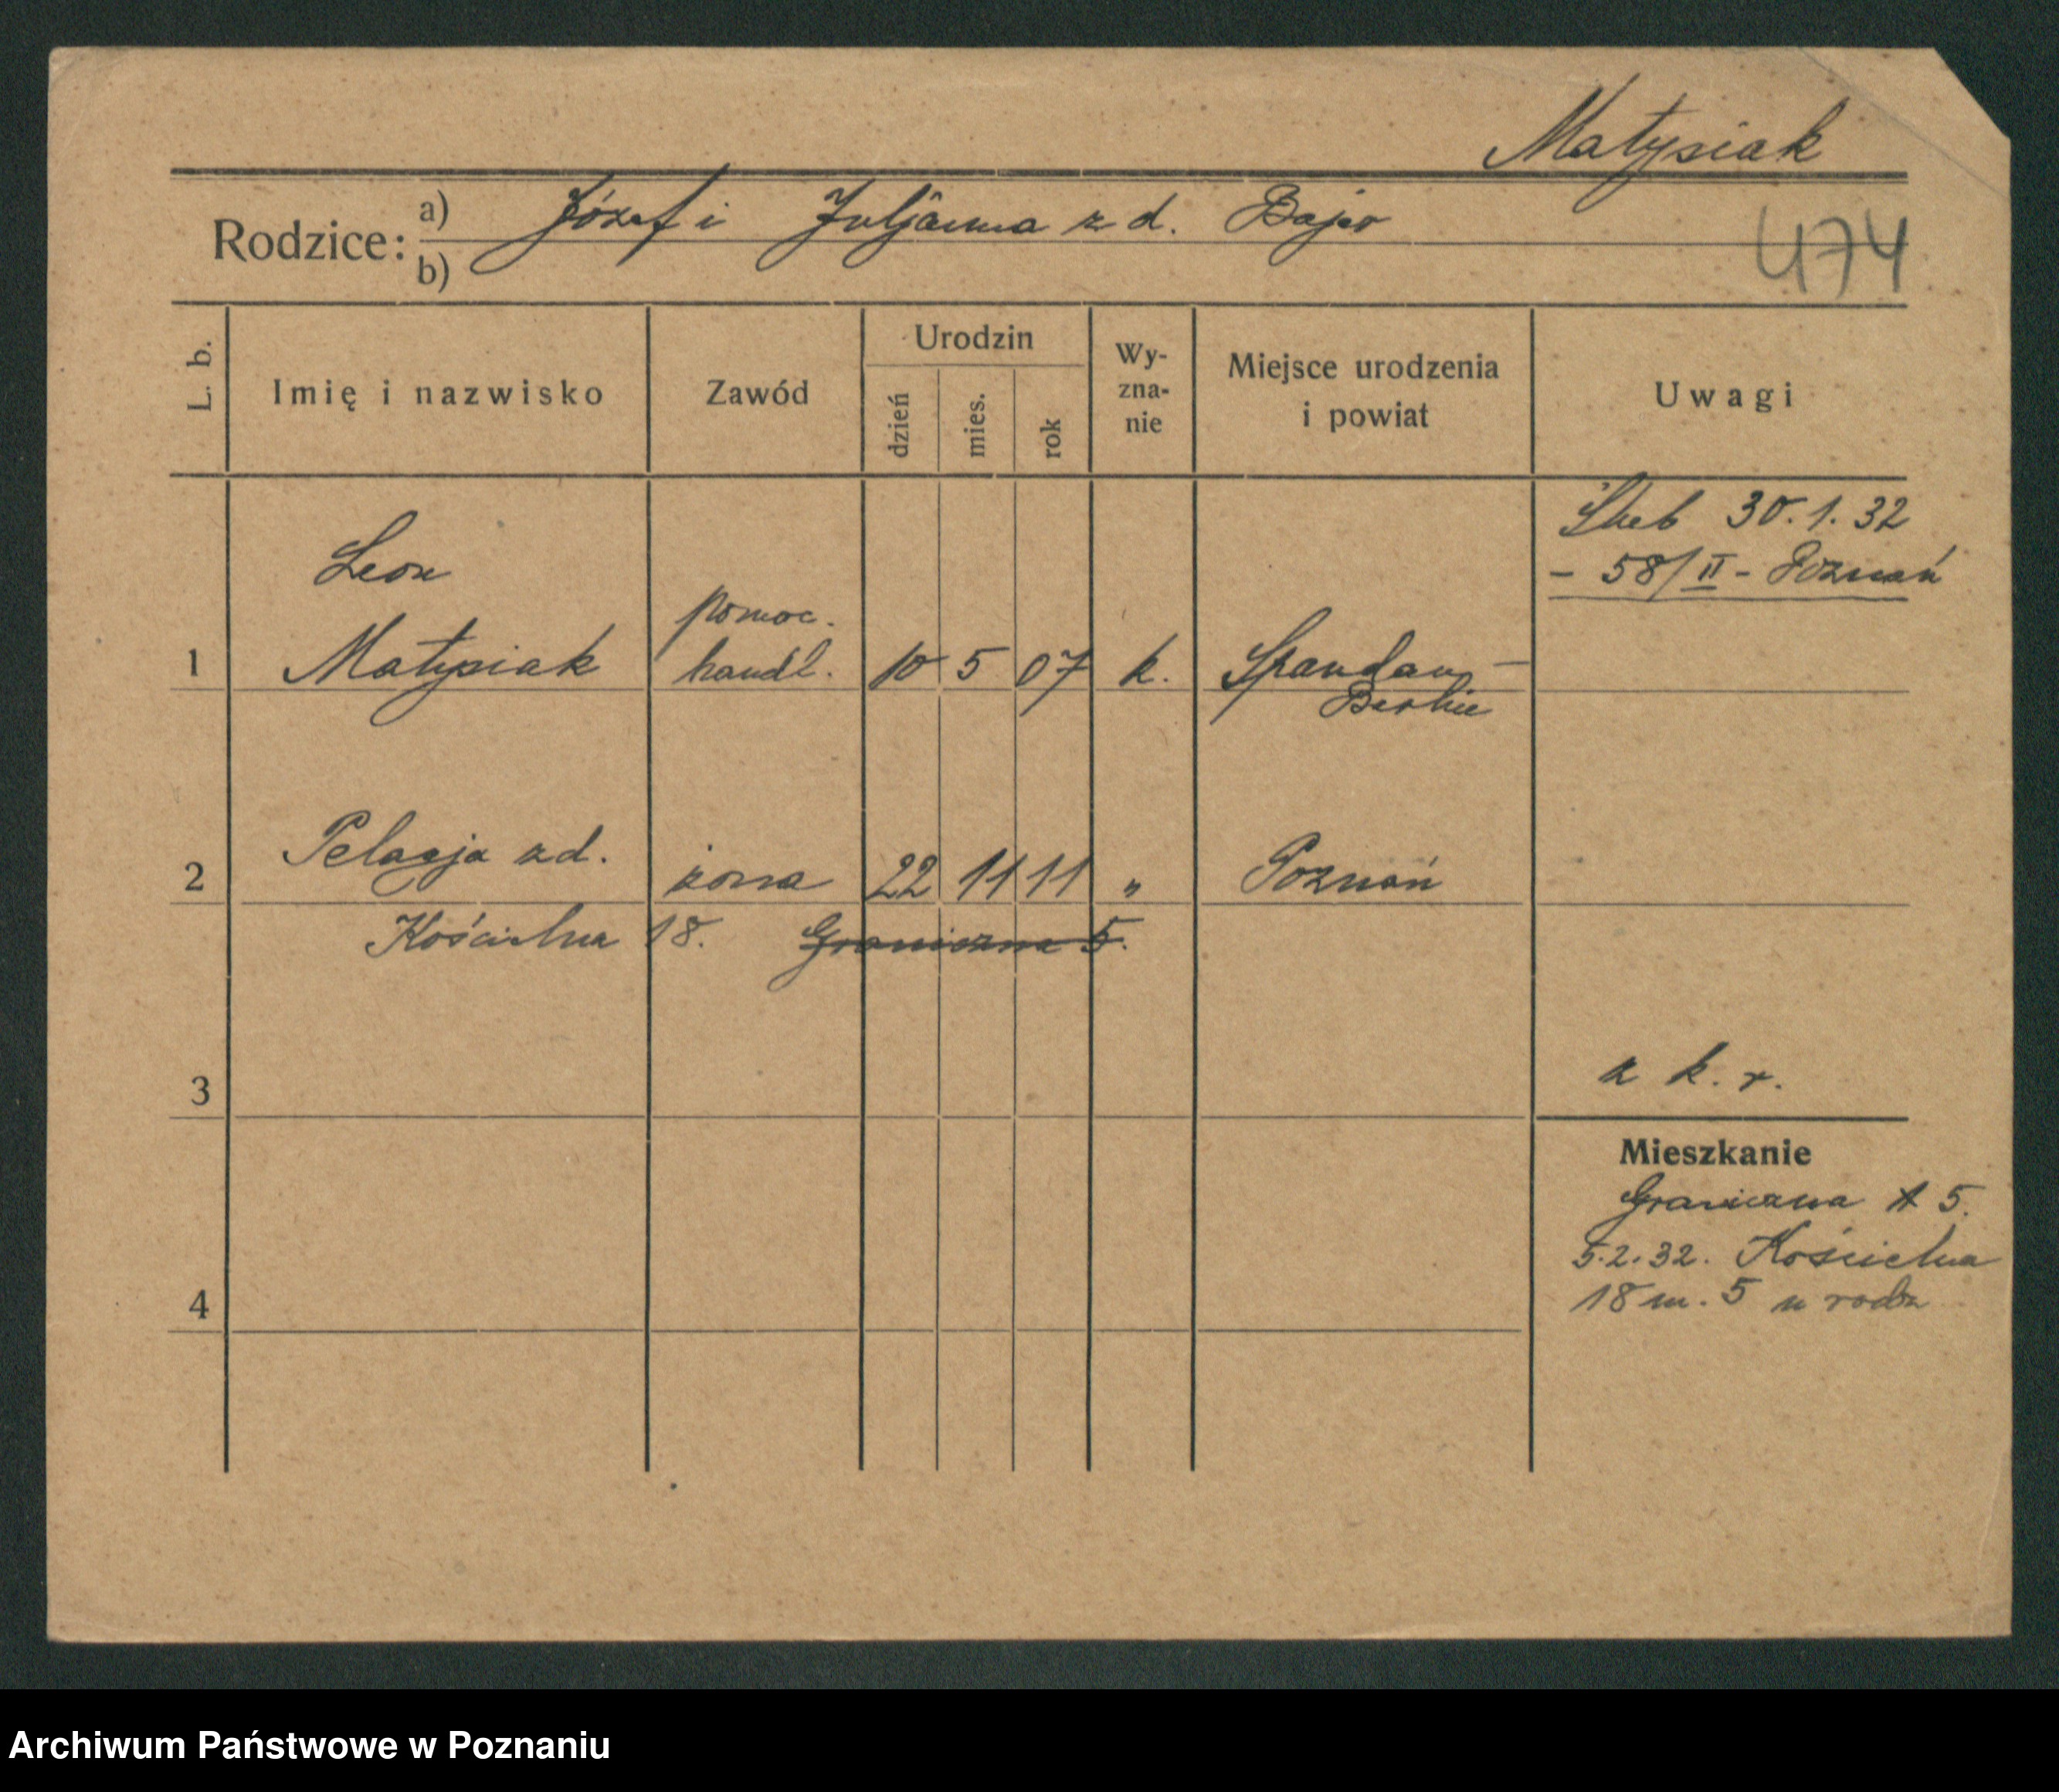 Matysiak
Rodzice: a) Józef i Juljanna z d. Bajer
b)
474
L. b.
Imię i nazwisko
Zawód
Urodzin
dzień
mies.
rok
Wy-
zna-
nie
Miejsce urodzenia
i powiat
Uwagi
Ślub 30.1.32
- 58/II - Poznań
Leon
1 Matysiak
pomoc.
handl.
10 5 07 k.
Spandau -
Berlin
2 Pelagja z d.
żona 22 11 11 „ Poznań
Kościelna 18. Graniczna 5.
3
z k. r.
Mieszkanie
Graniczna 5.
5.2.32. Kościelna
18 m. 5 u rodz
4
Archiwum Państwowe w Poznaniu